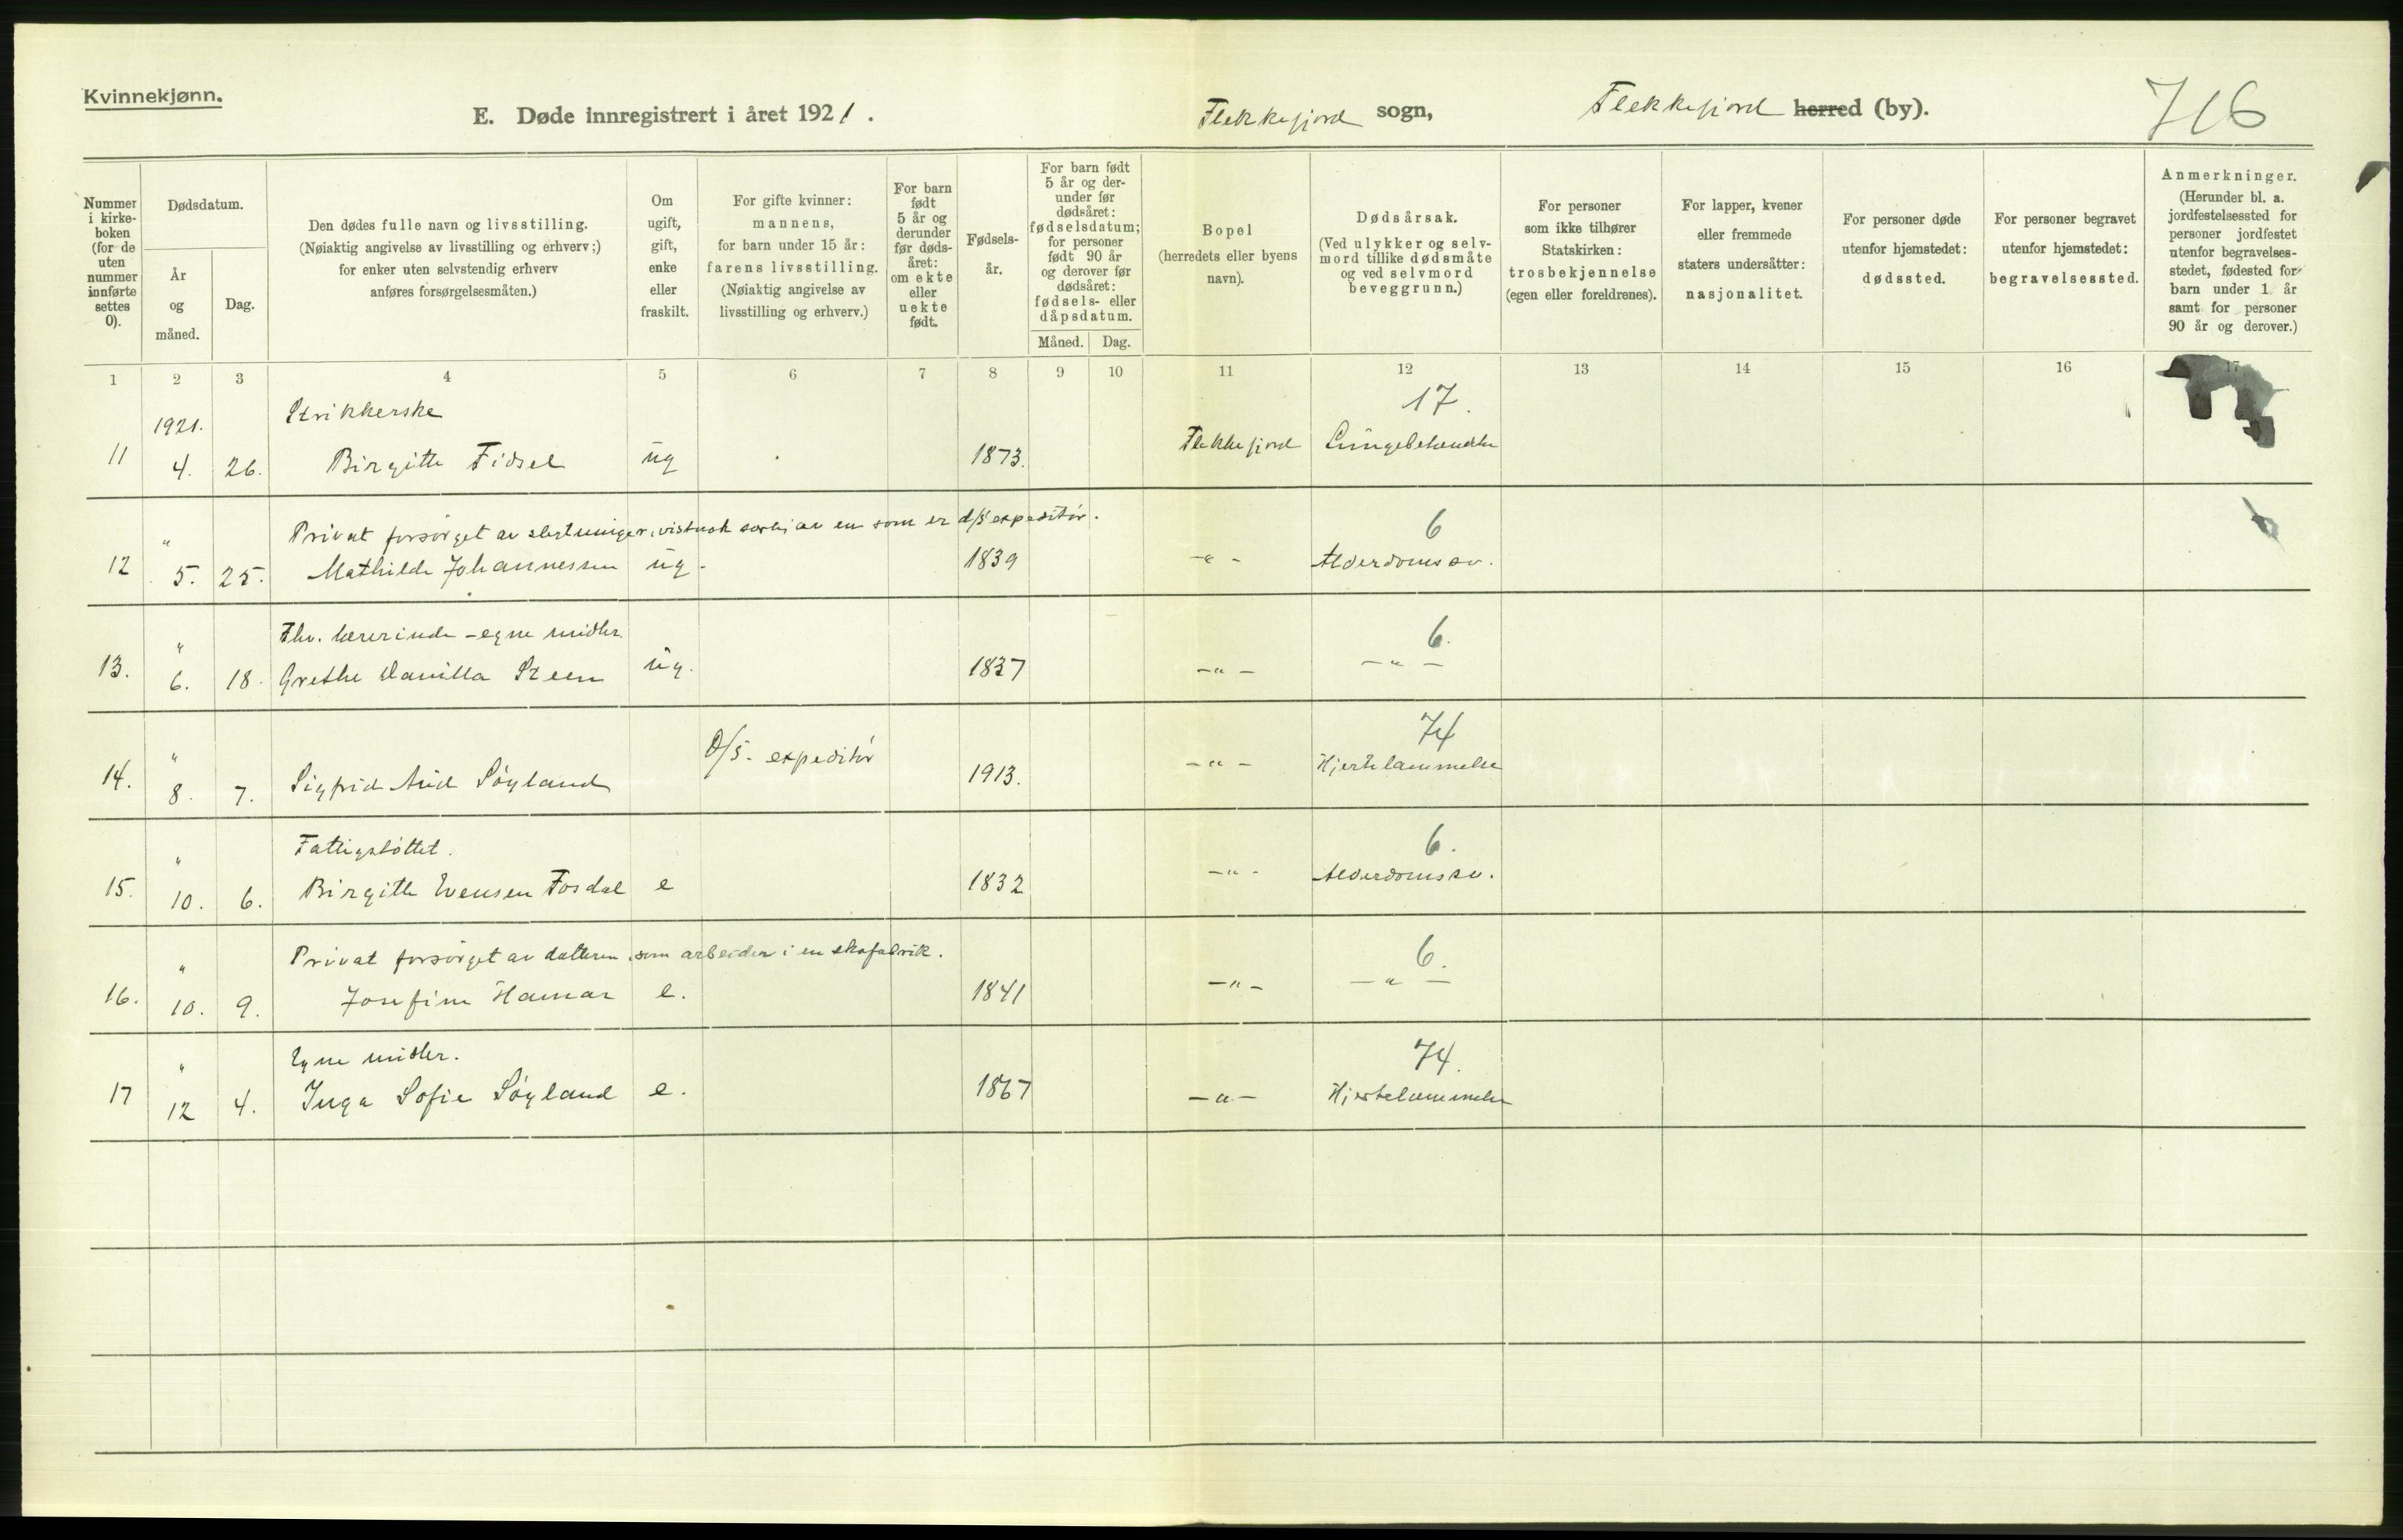 Kvinnekjønn.
E. Døde innregistrert i året 1921. Flekkefjord sogn, Flekkefjord herred (by). 716
Nummer i kirke-boken (for de uten nummer innførte settes 0).
Dødsdatum.
År og måned.
Dag.
Den dødes fulle navn og livsstilling.
(Nøiaktig angivelse av livsstilling og erhverv;)
for enker uten selvstendig erhverv
anføres forsørgelsesmåten.)
Om ugift, gift, enke eller fraskilt.
For gifte kvinner:
mannens,
for barn under 15 år:
farens livsstilling.
(Nøiaktig angivelse av
livsstilling og erhverv.)
For barn født 5 år og derunder før døds-året: om ekte eller uekte født.
Fødsels-år.
For barn født 5 år og der-under før dødsåret: fødselsdatum; for personer født 90 år og derover før dødsåret: fødsels- eller dåpsdatum.
Måned. Dag.
Bopel
(herredets eller byens
navn).
Dødsårsak.
(Ved ulykker og selv-
mord tillike dødsmåte
og ved selvmord
beveggrunn.)
For personer
som ikke tilhører
Statskirken:
trosbekjennelse
(egen eller foreldrenes).
For lapper, kvener
eller fremmede
staters undersåtter:
nasjonalitet.
For personer døde
utenfor hjemstedet:
dødssted.
For personer begravet
utenfor hjemstedet:
begravelsessted.
Anmerkninger.
(Herunder bl. a.
jordfestelsessted for
personer jordfestet
utenfor begravelses-
stedet, fødested for
barn under 1 år
samt for personer
90 år og derover.)
1 2 3 4 5 6 7 8 9 10 11 12 13 14 15 16 17
1921. Strikkerske 17.
11 4. 26. Birgitte Fidsel ug 1873. Flekkefjord Lungebetendelse
" Privat forsørget av slegtninger, vistnok av en som er d/s expeditør. 6
12 5. 25. Mathilde Johannessen ug. 1839 -"- Alderdomssv.
" Fhv. lærerinde - egne midler. 6.
13. 6. 18. Grethe Danilla Steen ug. 1837 -"- -"-
" D/S. expeditør 74
14. 8. 7. Sigfrid Aud Søyland 1913. -"- Hjertelammelse
" Fattigstøttet. 6.
15. 10. 6. Birgitte Evensen Fosdal e 1832 -"- Alderdomssv.
" Privat forsørget av datteren, som arbeider i en skofabrik. 6.
16. 10. 9. Josefine Hamar e. 1841 -"- -"-
" Egne midler. 74.
17 12 4. Inga Sofie Søyland e. 1867 -"- Hjertelammelse